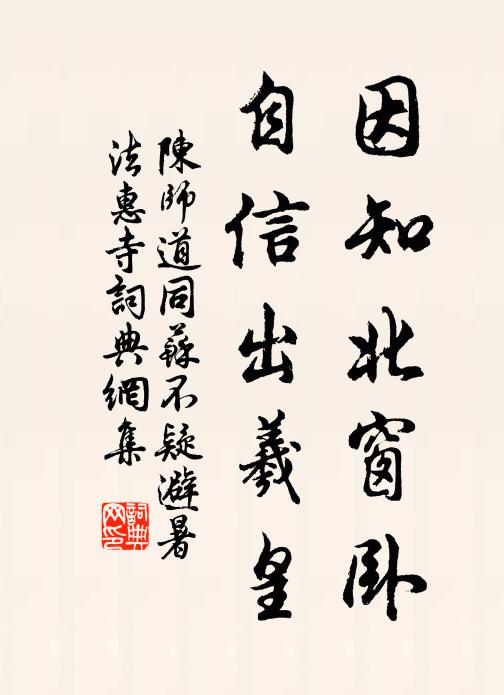 因知北窗卧
自信出羲皇
陳師道同蘇不疑避暑
法惠寺詞典網集
詞典
网印